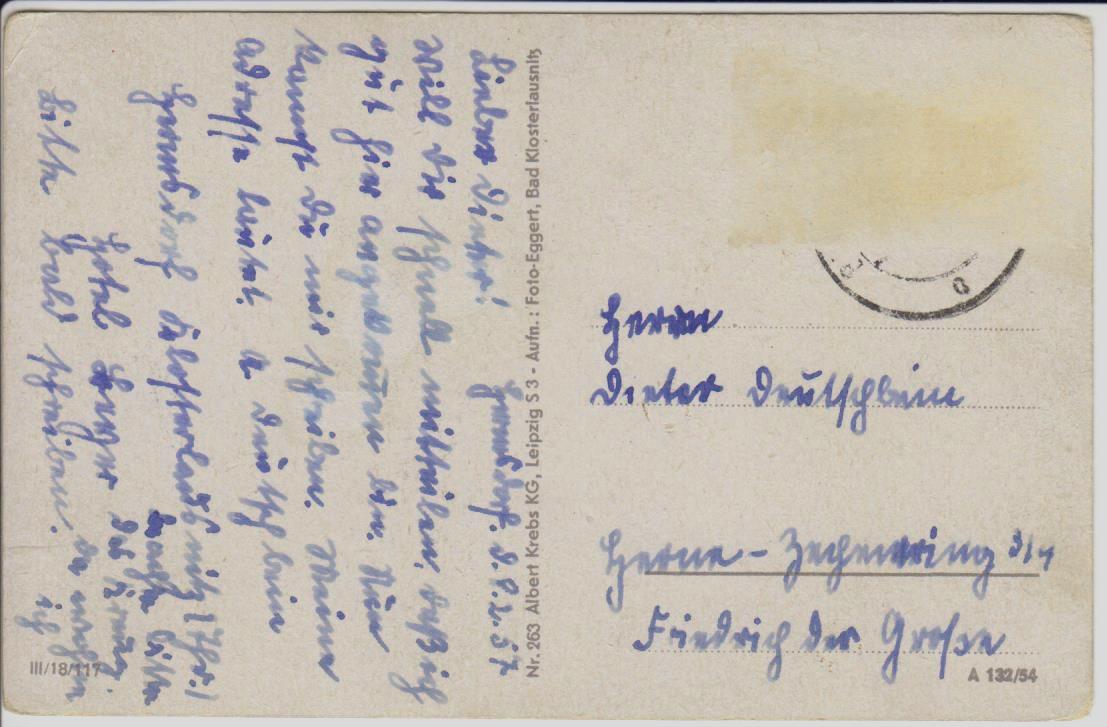 Hermsdorf. d. 8.2.57
Lieber Dieter!
Will dir schnell mitteilen, daß ich
gut hier angekommen bin. Nun
kannst du mir schreiben. Meine
Adresse lautet. A Deutschbein
Hermsdorf Klosterlausnitz /Thr./
Hotel
Bitte bald schreiben.
da ich
Nr. 263 Albert Krebs KG, Leipzig S 3 - Aufn.: Foto-Eggert, Bad Klosterlausnitz
III/18/117
Herrn
Dieter Deutschbein
Herne - Zechenring
Friedrich der Große
A 132/54